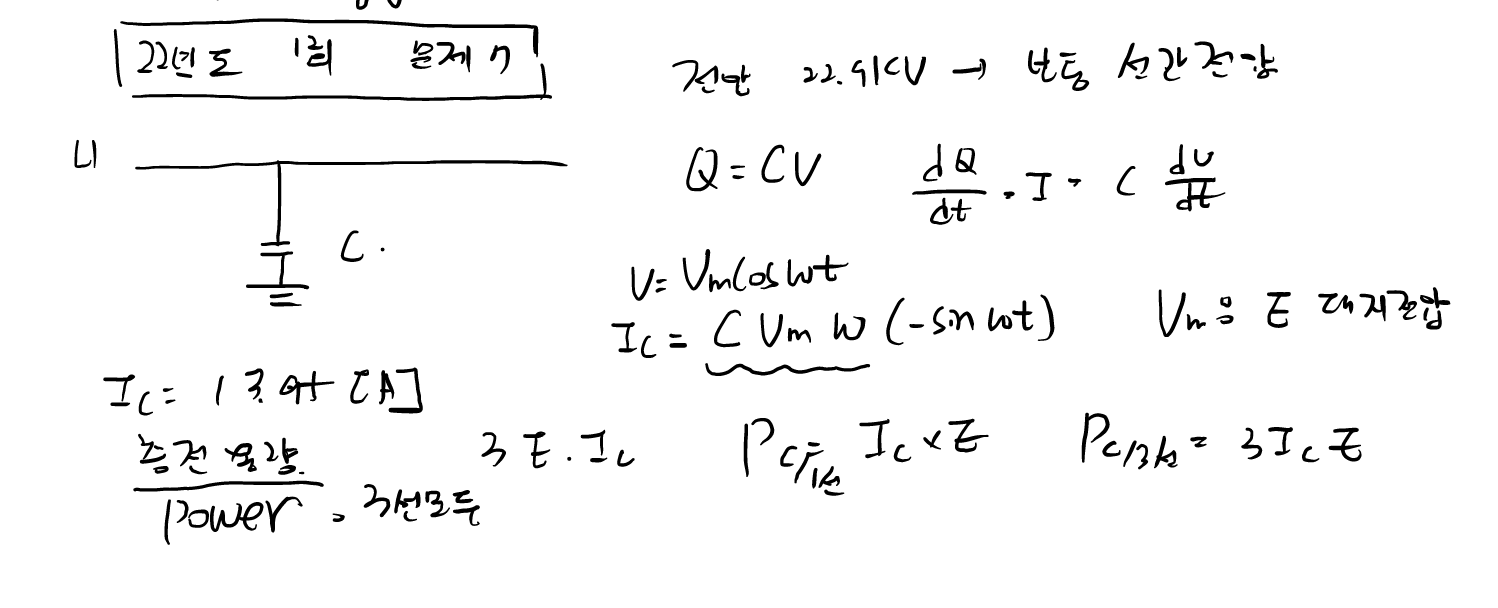 22년도 1회 문제 7
전압 22.9KV → 보통 선간전압
L1
Q = CV dQ/dt = I = C dV/dt
C.
V = Vm cos ωt
Ic = C Vm ω (-sin ωt) Vm은 E 대지전압
Ic = [A]
충전용량 3E·Ic Pc/1선 Ic × E Pc/3선 = 3IcE
Power = 3선모두